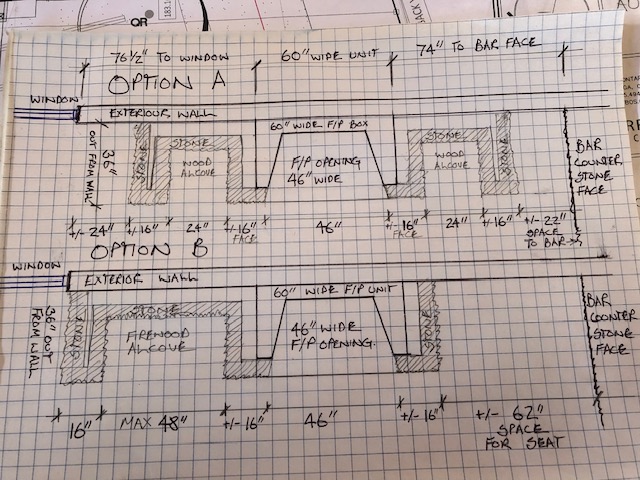 OR
183.15
JACK
AU
76 1/2" TO WINDOW
60" WIDE UNIT
74" TO BAR FACE
OPTION A
WINDOW
EXTERIOUR WALL
60" WIDE F/P BOX
36"
OUT FROM WALL
STONE
STONE
WOOD
ALCOVE
F/P OPENING
46" WIDE
STONE
WOOD
ALCOVE
STONE
BAR
COUNTER
STONE
FACE
+/- 24"
+/-16"
24"
+/-16"
FACE
46"
+/-16"
FACE
24"
+/-16"
+/-22"
SPACE
TO BAR
OPTION B
WINDOW
EXTERIOR WALL
60" WIDE F/P UNIT
36" OUT
FROM WALL
STONE
STONE
FIREWOOD
ALCOVE
46" WIDE
F/P OPENING
STONE
BAR
COUNTER
STONE
FACE
16"
MAX 48"
+/-16"
46"
+/-16"
+/- 62"
SPACE
FOR SEAT